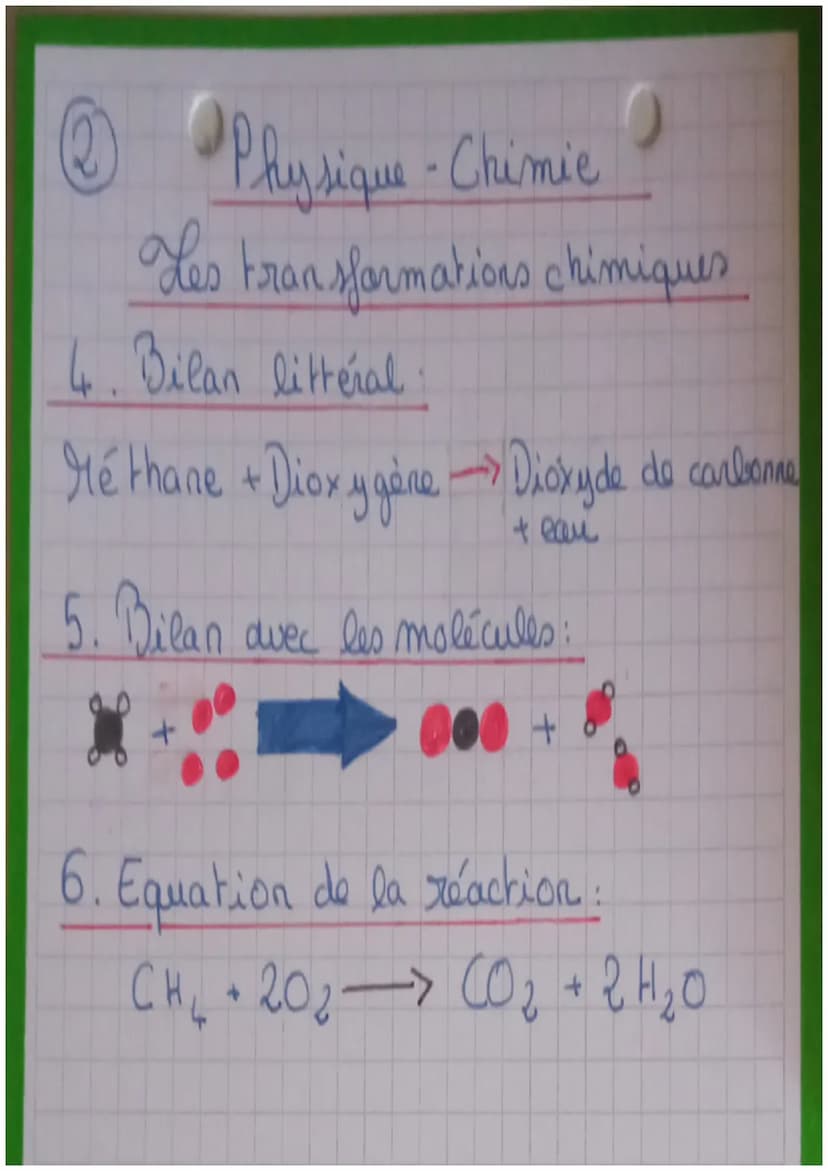 ②
Physique - Chimie
Les transformations chimiques
4. Bilan littéral :
Méthane + Dioxygène → Dioxyde de carbonne
+ eau
5. Bilan avec les molécules :
+ +
6. Equation de la réaction :
CH₄ + 2O₂ → CO₂ + 2H₂O